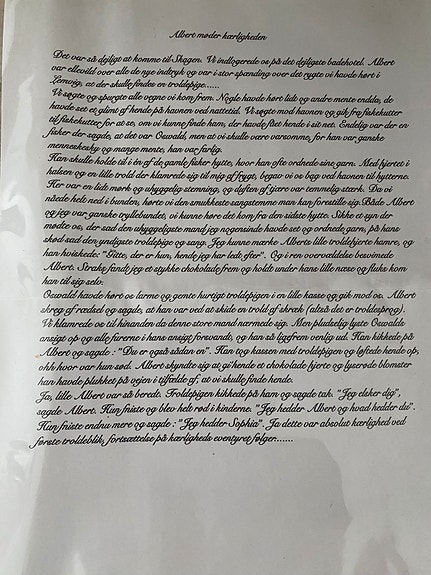 Albert møder kærligheden
Det var så dejligt at komme til Skagen. Vi indlogerede os på det dejligste badehotel. Albert
var ellevild over alle de nye indtryk og var i stor spænding over det rygte vi havde hørt i
Lemvig, at der skulle findes en troldepige......
Vi søgte og spurgte alle vegne vi kom frem. Nogle havde hørt lidt og andre mente endda, de
havde set et glimt af hende på havnen ved nattetid. Vi søgte mod havnen og gik fra fiskekutter
til fiskekutter for at se, om vi kunne finde ham, der havde fået hende i sit net. Endelig var der en
fisker der sagde, at det var Oswald, men at vi skulle være varsomme, for han var ganske
menneskesky og mange mente, han var farlig.
Han skulle holde til i én af de gamle fisker hytte, hvor han ofte ordnede sine garn. Med hjertet i
halsen og en lille trold der klamrede sig til mig af frygt, begav vi os bag ved havnen til hytterne.
Her var en lidt mørk og uhyggelig stemning, og duften af tjære var temmelig stærk. Da vi
nåede helt ned i bunden, hørte vi den smukkeste sangstemme man kan forestille sig. Både Albert
og jeg var ganske tryllebundet, vi kunne høre det kom fra den sidste hytte. Sikke et syn der
mødte os, der sad den uhyggeligste mand jeg nogensinde havde set og ordnede garn, på hans
skød sad den yndigste troldepige og sang. Jeg kunne mærke Alberts lille troldehjerte hamre, og
han hviskede: "Gitte, der er hun, hende jeg har ledt efter". Og i ren overvældelse besvimede
Albert. Straks fandt jeg et stykke chokolade frem og holdt under hans lille næse og fluks kom
han til sig selv.
Oswald havde hørt os larme og gemte hurtigt troldepigen i en lille kasse og gik mod os. Albert
skreg af rædsel og sagde, at han var ved at skide en trold af skræk (altså det er troldesprog).
Vi klamrede os til hinanden da denne store mand nærmede sig. Men pludselig lyste Oswalds
ansigt op og alle furerne i hans ansigt forsvandt, og han så ligefrem venlig ud. Han kikkede på
Albert og sagde : "Du er også sådan en". Han tog kassen med troldepigen og løftede hende op,
ohh hvor var hun sød. Albert skyndte sig at gi'hende et chokolade hjerte og lyserøde blomster
han havde plukket på vejen i tilfælde af, at vi skulle finde hende.
Ja, lille Albert var så beredt. Troldepigen kikkede på ham og sagde tak. "Jeg elsker dig",
sagde Albert. Hun fniste og blev helt rød i kinderne. "Jeg hedder Albert og hvad hedder du".
Hun fniste endnu mere og sagde : "Jeg hedder Sophia". Ja dette var absolut kærlighed ved
første troldeblik, fortsættelse på kærligheds eventyret følger......